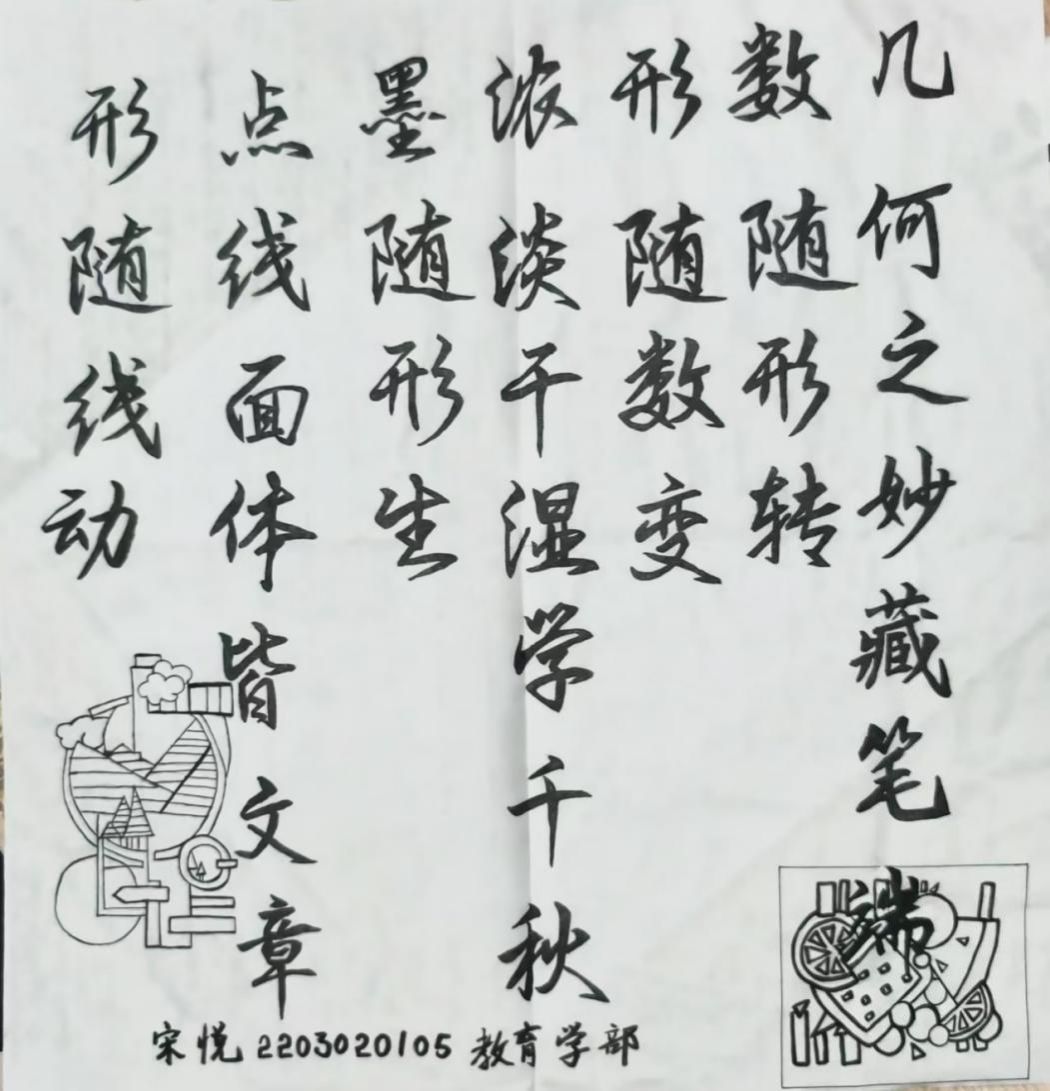 几何之妙藏笔端
数随形转
形随数变
浓淡干湿学千秋
墨随形生
点线面体皆文章
形随线动
宋悦 2203020105 教育学部